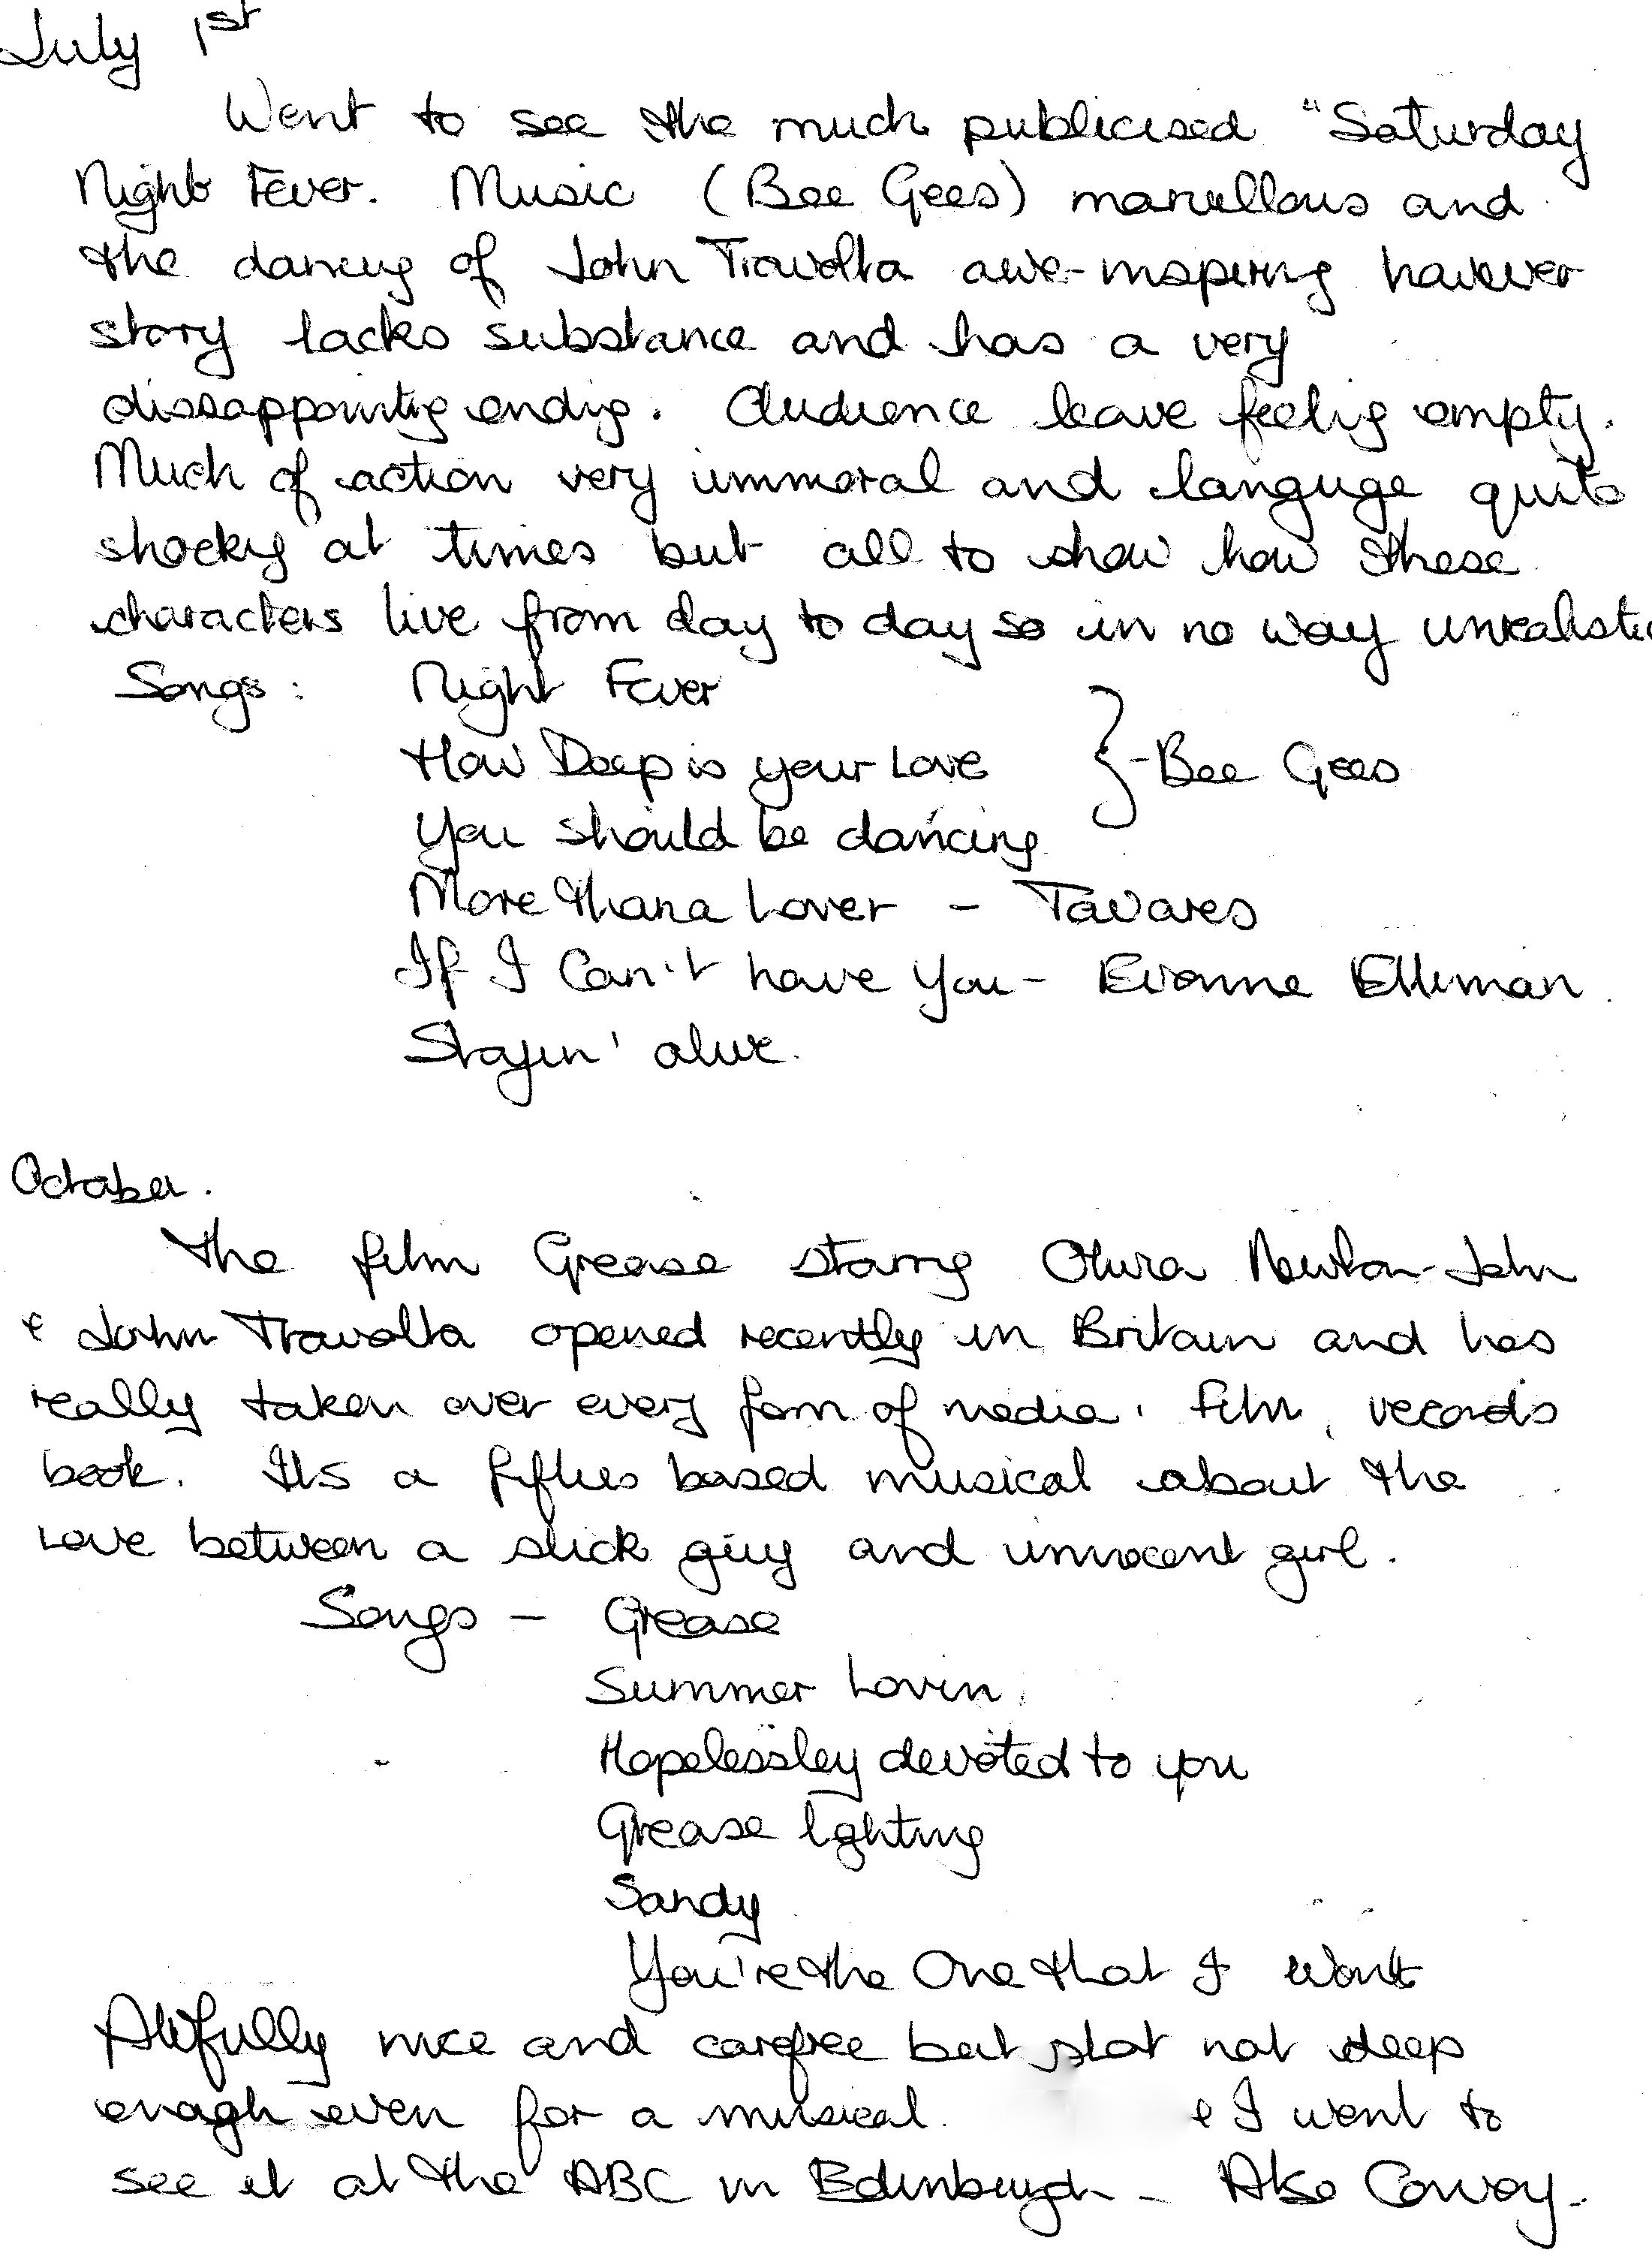 July 1st
Went to see the much publicised "Saturday
Night Fever. Music (Bee Gees) marvellous and
the dancing of John Travolta awe-inspiring however
story lacks substance and has a very
dissappointing ending. Audience leave feeling empty.
Much of action very immoral and languge quite
shocking at times but all to show how these
characters live from day to day so in no way unrealistic
Songs: Night Fever
How Deep is your Love } - Bee Gees
You should be dancing
More than a Lover - Tavares
If I Can't have You - Evonne Elliman
Stayin' alive.
October.
The film Grease starring Olivia Newton-John
& John Travolta opened recently in Britain and has
really taken over every form of media. Film, records
book. Its a fifties based musical about the
Love between a slick guy and innocent girl.
Songs - Grease
Summer Lovin
Hopelessley devoted to you
Grease lighting
Sandy
You're the One that I want
Awfully nice and carefree but plot not deep
enough even for a musical. & I went to
see it at the ABC in Edinburgh - Also Convoy.